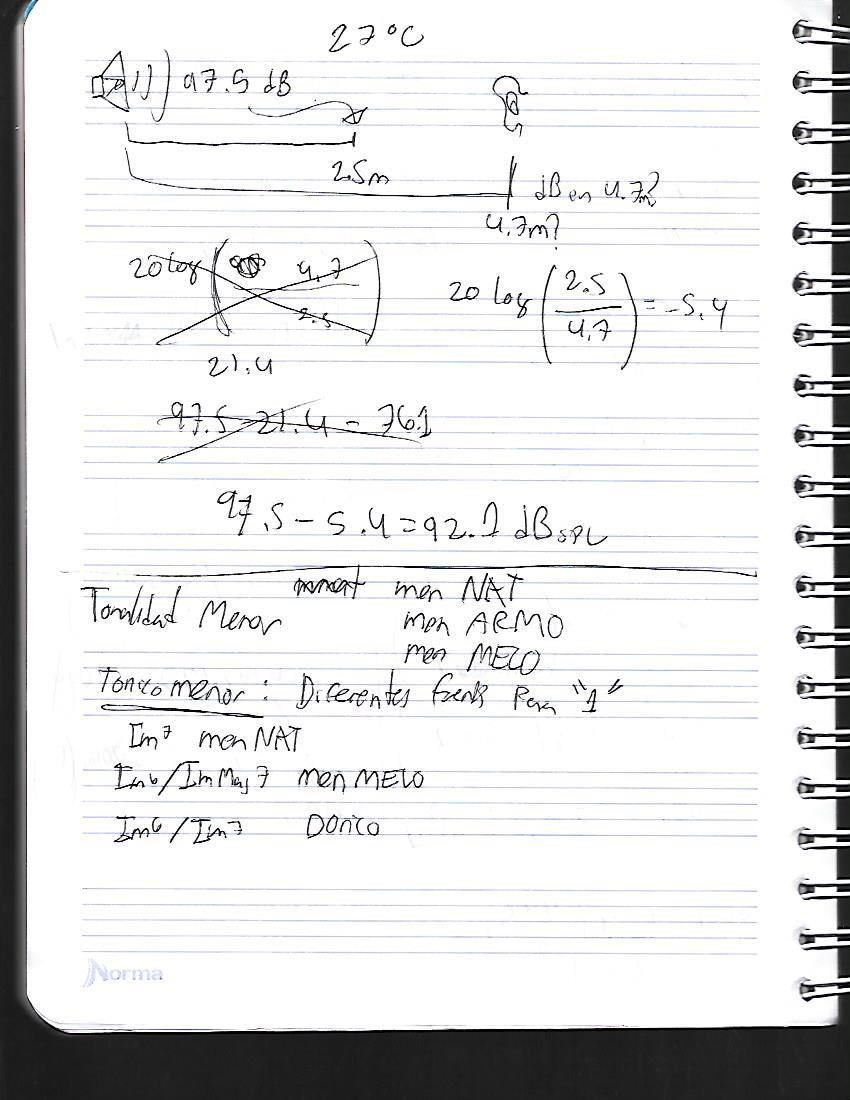 27°C
97.5 dB
2.5m
dB en 4.7m?
4.7m?
20 log ( 4.7 / 2.5 )
20 log ( 2.5 / 4.7 ) = -5.4
21.4
97.5 - 21.4 = 76.1
97.5 - 5.4 = 92.1 dB SPL
men NAT
Tonalidad Menor
men ARMO
men MELO
Tonico menor: Diferentes Para "1"
Im7 men NAT
Im6/Im Maj7 men MELO
Im6/Im7 Dorico
Norma